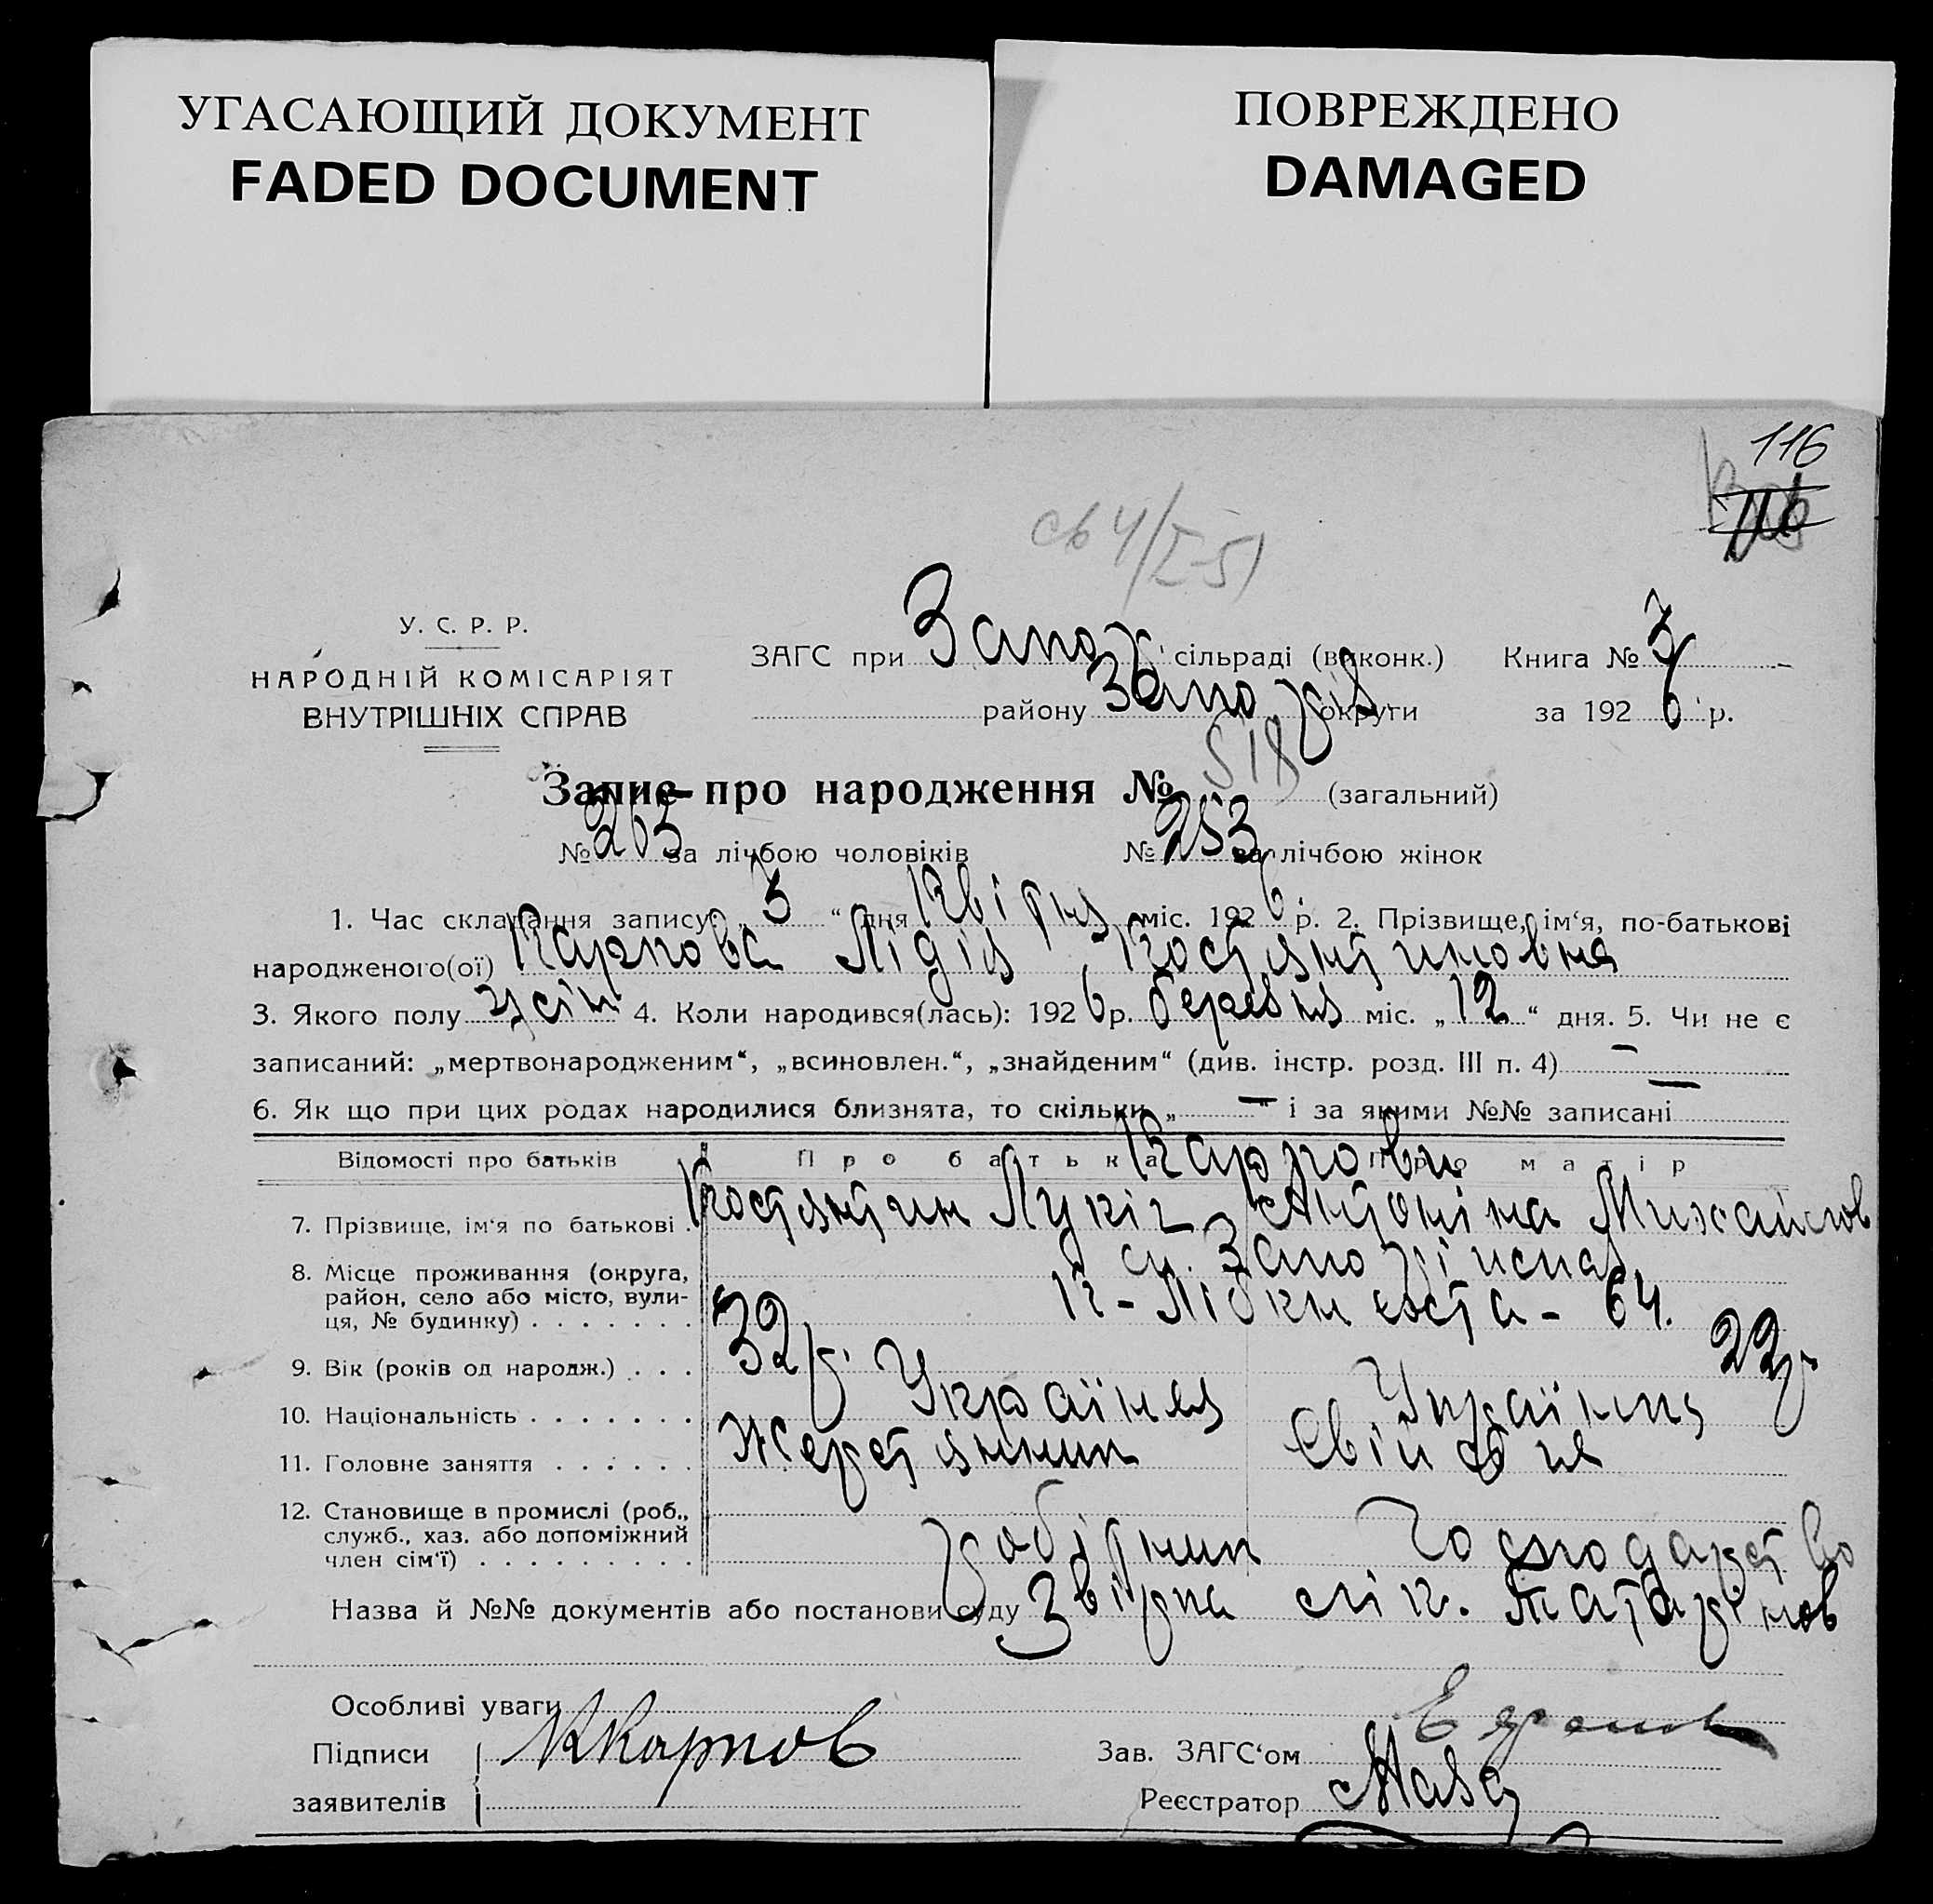 УГАСАЮЩИЙ ДОКУМЕНТ
FADED DOCUMENT
ПОВРЕЖДЕНО
DAMAGED
116
У. С. Р. Р.
НАРОДНІЙ КОМІСАРІЯТ
ВНУТРІШНІХ СПРАВ
ЗАГС при Запоріз сільраді (виконк.) Книга № 7
району Запоріз округи за 1926 р.
Запис про народження № 518 (загальний)
№ 265 за лічбою чоловіків № 253 за лічбою жінок
1. Час складання запису: „ 3 “ дня Квітня міс. 1926 р. 2. Прізвище, ім‘я, по-батькові
народженого(ої) Карпова Лідія Костянтиновна
3. Якого полу жін 4. Коли народився(лась): 1926 р. березня міс. „ 12 “ дня. 5. Чи не є
записаний: „мертвонародженим“, „всиновлен.“, „знайденим“ (див. інстр. розд. III п. 4) —
6. Як що при цих родах народилися близнята, то скільки „ — “ і за якими №№ записані —
Відомості про батьків Про батька Про матір
Карпови
7. Прізвище, ім‘я по батькові . Костянтин Лукіч Антоніна Михайлов
8. Місце проживання (округа, район, село або місто, вулиця, № будинку) . . . . . . . Запоріжжя
К-Лібкнехта - 64.
9. Вік (років од народж.) . . . 32 р. 22 р.
10. Національність . . . . . . . Українец Українка
11. Головне заняття . . . . . . Жерстянник
12. Становище в промислі (роб.,
служб., хаз. або допоміжний
член сім‘ї) . . . . . . . . . робітник господарство
Назва й №№ документів або постанови суду Звірка лік. Татарінов
Особливі уваги
Підписи
заявителів
ККарпов
Зав. ЗАГС‘ом
Реєстратор